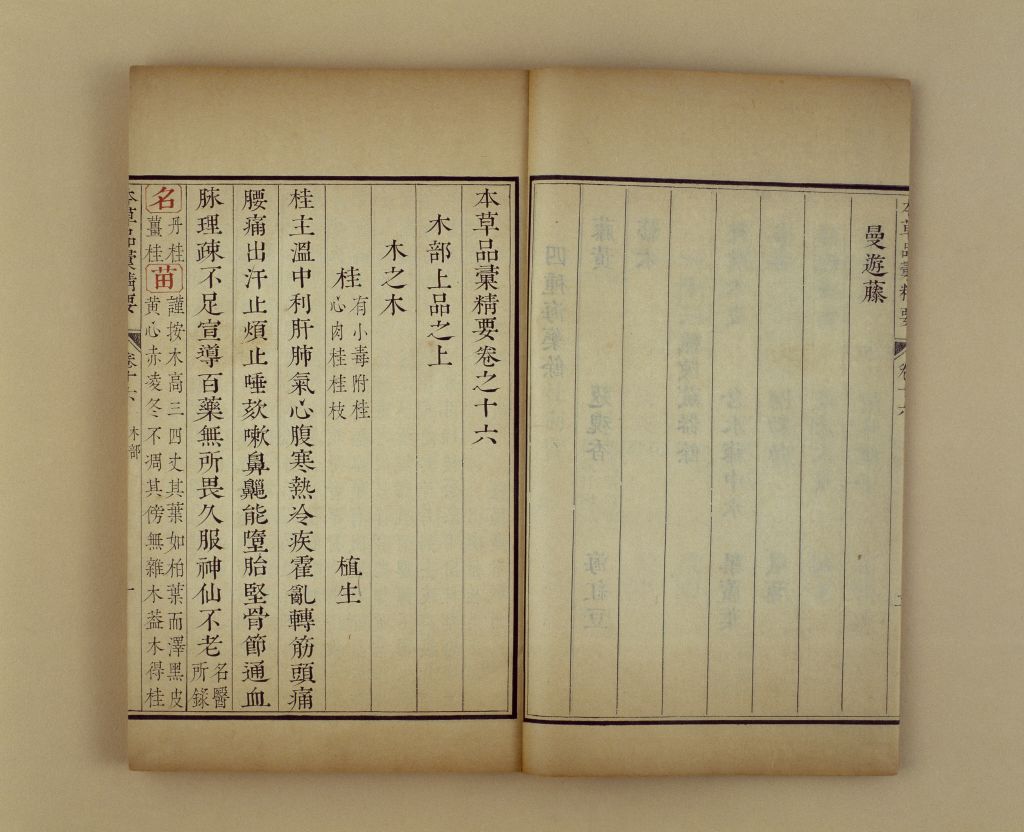 曼遊藤
本草品彙精要 卷十六
本草品彙精要卷之十六
木部上品之上
木之木
桂 有小毒附桂心肉桂桂枝 植生
桂主溫中利肝肺氣心腹寒熱冷疾霍亂轉筋頭痛
腰痛出汗止煩止唾欬嗽鼻齆能墮胎堅骨節通血
脉理疎不足宣導百藥無所畏久服神仙不老 名醫所錄
名 丹桂薑桂 苗 謹按木高三四丈其葉如柏葉而澤黑皮黃心赤凌冬不凋其傍無雜木葢木得桂
本草品彙精要 卷十六 木部 一